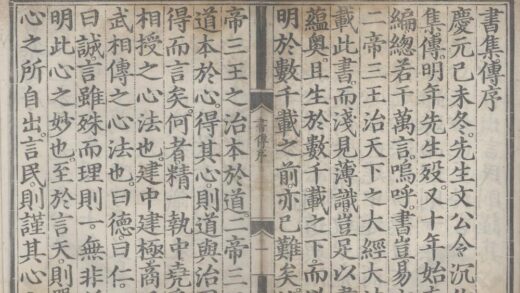 書集傳序
慶元己未冬。先生文公令沉
集傳。明年先生歿。又十年始
編。總若干萬言。嗚呼。書豈易
二帝三王治天下之大經大
載此書。而淺見薄識。豈足以
蘊奧。且生於數千載之下。而
明於數千載之前。亦已難矣。
書傳序
一
帝三王之治本於道。二帝三
道本於心。得其心。則道與治
得而言矣。何者。精一執中。堯
相授之心法也。建中建極。商
武相傳之心法也。曰德曰仁。
曰誠。言雖殊而理則一。無非
明此心之妙也。至於言天。則
心之所自出。言民。則謹其心